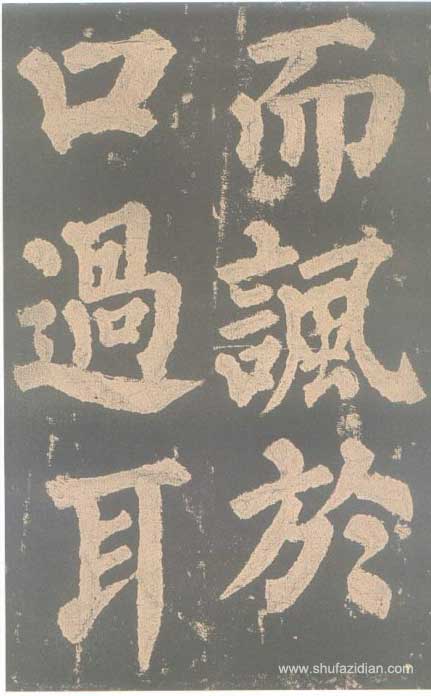 而諷於
口過耳
www.shufazidian.com